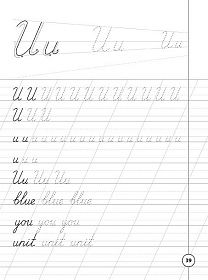 Uu Uu Uu
U U U U U U U U U U U U
U U U
u u u u u u u u u u u u u u u u
u u u
Uu Uu Uu
blue blue blue
you you you
unit unit unit
19